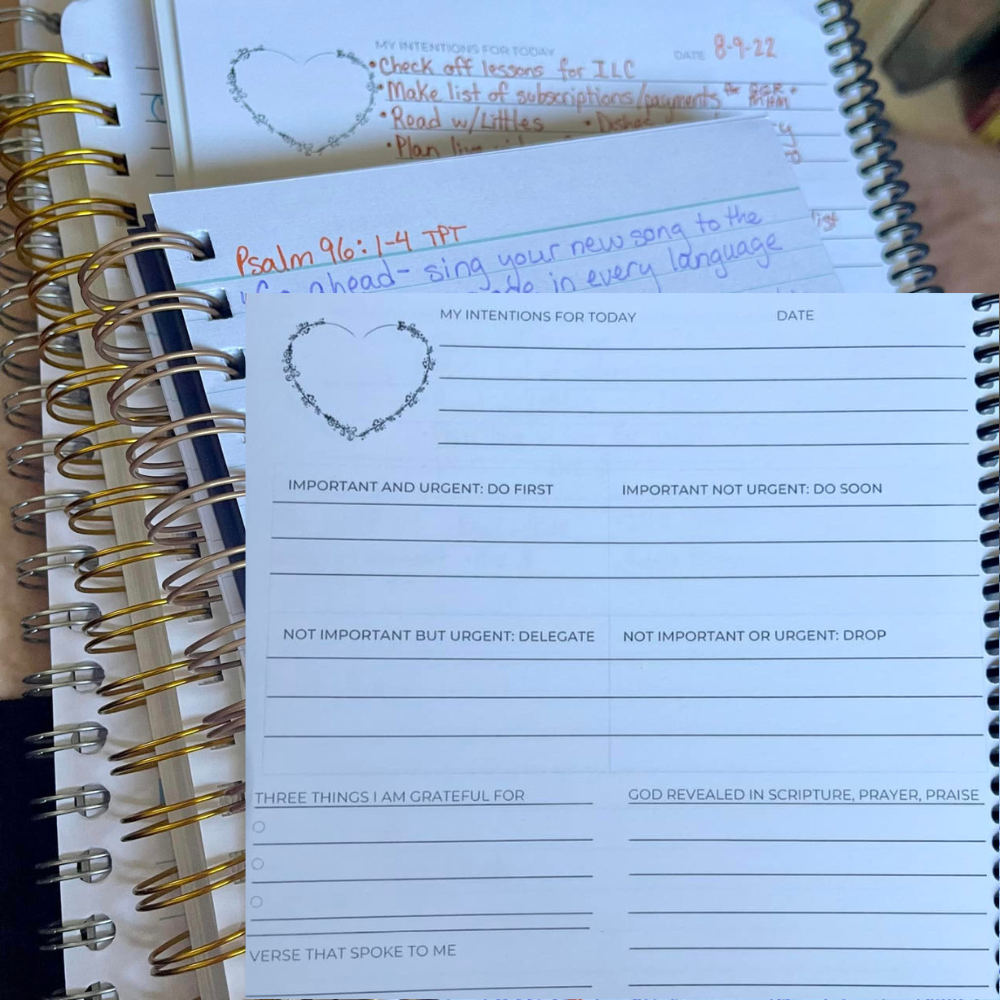 MY INTENTIONS FOR TODAY DATE 8-9-22
• Check off lessons for ILC
• Make list of subscriptions/payments
• Read w/Littles • Dishes
• Plan
list
Psalm 96:1-4 TPT
ahead- sing your new song to the
in every language
MY INTENTIONS FOR TODAY DATE
IMPORTANT AND URGENT: DO FIRST IMPORTANT NOT URGENT: DO SOON
NOT IMPORTANT BUT URGENT: DELEGATE NOT IMPORTANT OR URGENT: DROP
THREE THINGS I AM GRATEFUL FOR GOD REVEALED IN SCRIPTURE, PRAYER, PRAISE
VERSE THAT SPOKE TO ME